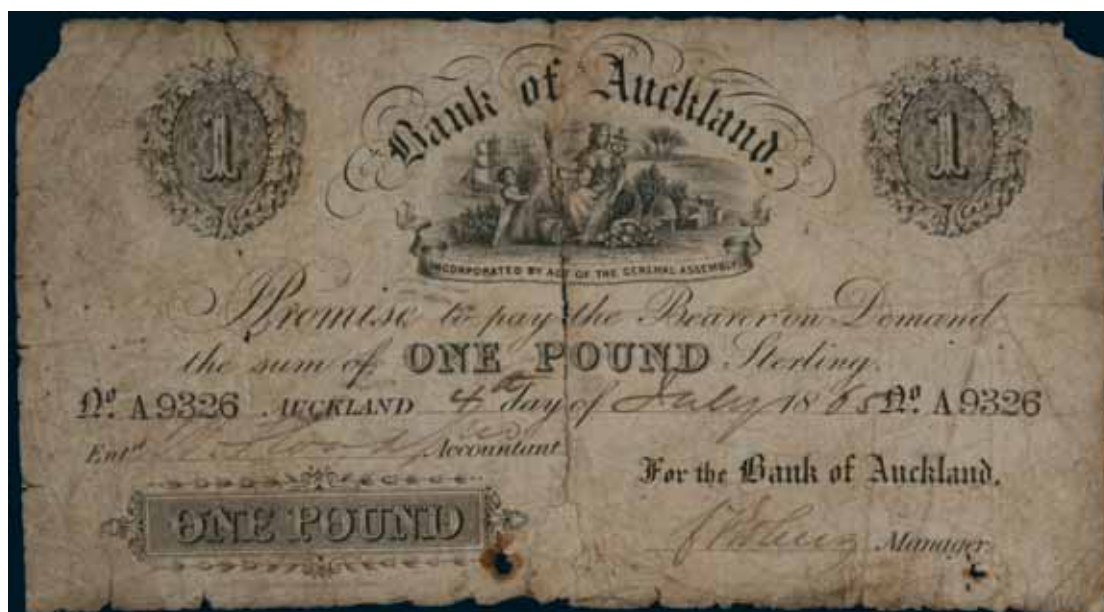 1 1
Bank of Auckland.
INCORPORATED BY ACT OF THE GENERAL ASSEMBLY
I Promise to pay the Bearer on Demand
the sum of ONE POUND Sterling.
No. A 9326 AUCKLAND 4th Day of July 1865 No. A 9326
Entd Accountant
For the Bank of Auckland.
ONE POUND
Manager